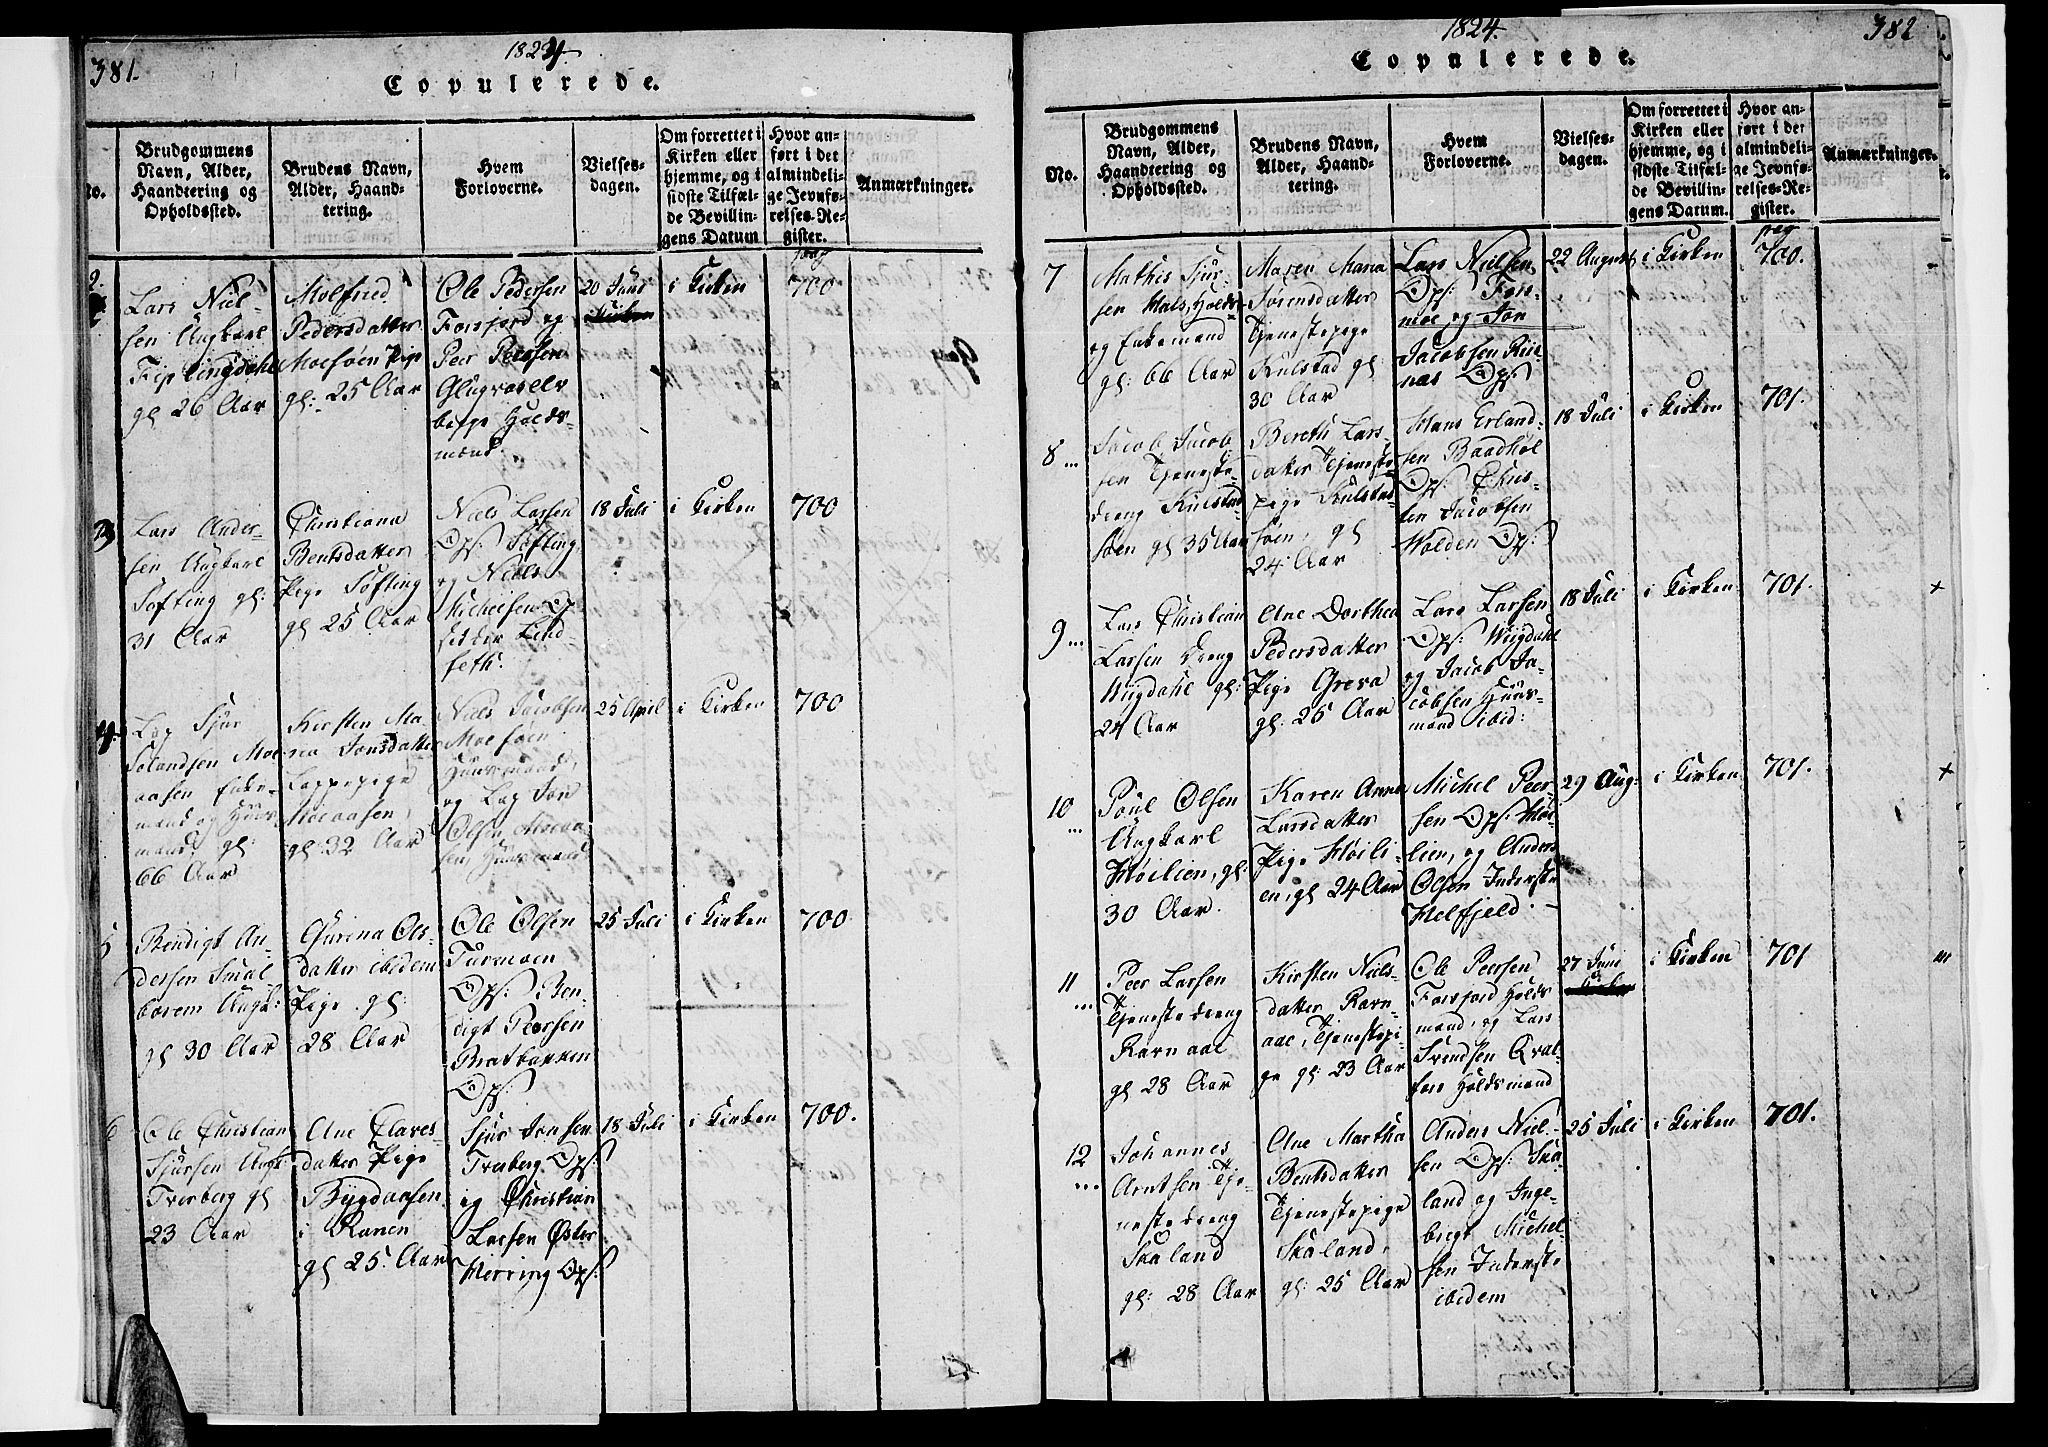 381.
1824.
Copulerede.
No.
Brudgommens
Navn, Alder,
Haandtering og
Opholdssted.
Brudens Navn,
Alder, Haand-
tering.
Hvem
Forloverne.
Vielses-
dagen.
Om forrettet i
Kirken eller
hjemme, og i
sidste Tilfæl-
de Bevillin-
gens Datum
Hvor an-
ført i det
almindeli-
ge Jevnfø-
relses-Re-
gister.
Anmærkninger.
2.
Lars Niel-
sen Ungkarl
Fiplingdahl
gl 26 Aar
Molfried
Pedersdatter
Moesøen Pige
gl: 25 Aar
Ole Pedersen
Forsjord og
Peer Peersen
Huuds-
mænd.
20 Juni
i Kirken
pag
700
3
Lars Ander-
sen Ungkarl
Søfting gl:
31 Aar
Christiana
Bentsdatter
Pige Søfting
gl 25 Aar
Niels Larsen
Ops: Søfting
og Niels
Michelsen Op-
sidder Lind-
seth.
18 Juli
i Kirken
700
4.
Lap Sjur
Moe-
aasen Enke-
mand og Huus-
mand, gl:
66 Aar
Kirsten Ma-
ria Jonsdatter
Lappepige
Moeaasen,
gl: 32 Aar
Niels Jacobsen
Moesøen
Huusmand,
og Lap Jon
Olsen, Moeaa-
sen, Huusmand
25 April
i Kirken
700
5
Bendigt An-
dersen Smal-
Ungk:
gl 30 Aar
Gurina Ols-
datter ibidem
Pige gl:
28 Aar
Ole Olsen
Turmoen
Ops: Ben-
digt Peersen
Bratbakken
Ops:
25 Juli
i Kirken
700
6
Ole Christian
Sjursen Ungk:
Tverberg gl
23 Aar
Ane
datter Pige
Bygdaasen
i Ranen
gl 25. Aar
Sjur Jonsen
Tverberg Ops:
og Christian
Larsen Øster
Herring Ops:
18 Juli
i Kirken
700.
382
1824.
Copulerede.
No.
Brudgommens
Navn, Alder,
Haandtering og
Opholdssted.
Brudens Navn,
Alder, Haand-
tering.
Hvem
Forloverne.
Vielses-
dagen.
Om forrettet i
Kirken eller
hjemme, og i
sidste Tilfæl-
de Bevillin-
gens Datum.
Hvor an-
ført i det
almindeli-
ge Jevnfø-
relses-Re-
gister.
Anmærkninger.
7
Mathis Sjur-
sen
og Enkemand
gl: 66 Aar
Maren Maria
Sørensdatter
Tjenestepige
Kulstad gl:
30 Aar
Lars Nielsen
Ops:
moe og Jon
Jacobsen Rii-
næs Ops:
22 August
i Kirken
pag
700.
8 ...
Jacob Jacob-
sen Tjeneste-
dreng Kulstad-
søen gl 35 Aar
Bereth Lars-
datter Tjeneste-
pige Kulstad-
søen, gl
24 Aar
Hans Erland-
sen Baadhol
Ops: Chris-
ten Jacobsen
Wolden Ops:
18 Juli
i Kirken
701.
9 ...
Lars Christian
Larsen Dreng
Wigdahl gl:
24 Aar
Ane Dorthea
Pedersdatter
Pige Greva
gl: 25 Aar
Lars Larsen
Ops: Wigdahl
og Jacob Ja-
cobsen Huus-
mand ibid:
18 Juli
i Kirken
701.
+
10
...
Poul Olsen
Ungkarl
Høilien, gl:
30 Aar.
Karen Anne
Larsdatter
Pige Høili-
en, gl 24 Aar
Michel Peer-
sen Ops: Høi-
lien, og Anders
Olsen Inderste
Helfjeld.
29 Aug:
i Kirken
701.
+
11
...
Peer Larsen
Tjenestedreng
Ravnaae
gl 28 Aar
Kirsten Niels-
datter Ravn-
aae, Tjenestepi-
ge gl: 23 Aar
Ole Peersen
Forsjord Huuds-
mand, og Lars
Svendsen Qval-
fors Huudsmand
27 Juni
i Kirken
701
12
...
Johannes
Arntsen Tje-
nestedreng
Skaland
gl: 28 Aar
Ane Martha
Bentsdatter
Tjenestepige
Skaland,
gl: 25 Aar
Anders Niel-
sen Ops: Ska-
land og Inge-
brigt Michel-
sen Inderste
ibidem
25 Juli
i Kirken
701.